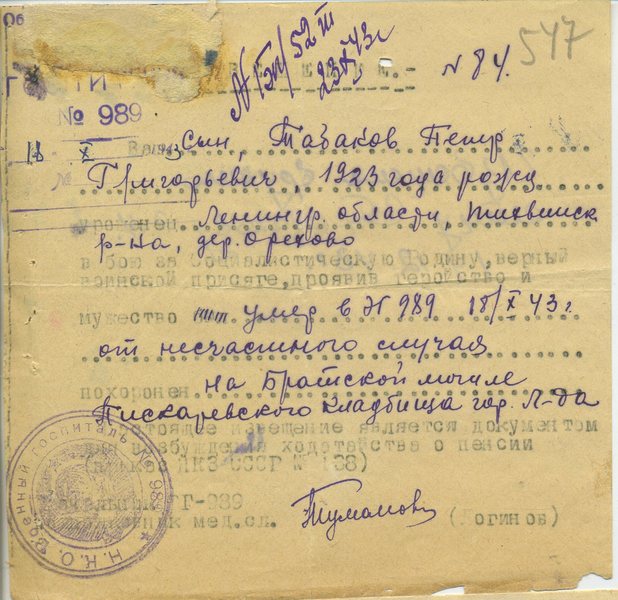 Об
547
N 84.
23/X 43г
ГОСПИТ
№ 989
ИЗВЕЩЕНИЕ.-
18 X 1943
Ваш сын, Табаков Петр
№ Григорьевич, 1923 года рожд
уроженец Ленингр. области, Тихвинск
р-на, дер. Орехово
в бою за Социалистическую Родину, верный
воинской присяге, проявив геройство и
мужество умер в ЭГ 989 18/X 43 г.
от несчастного случая
похоронен на Братской могиле
Пискаревского кладбища гор. Л-да
Настоящее извещение является документом
для возбуждения ходатайства о пенсии
(приказ НКО СССР № 138)
Начальник ЭГ-989
мед.сл. (Логинов)
Военный госпиталь № 989
Н.К.О.